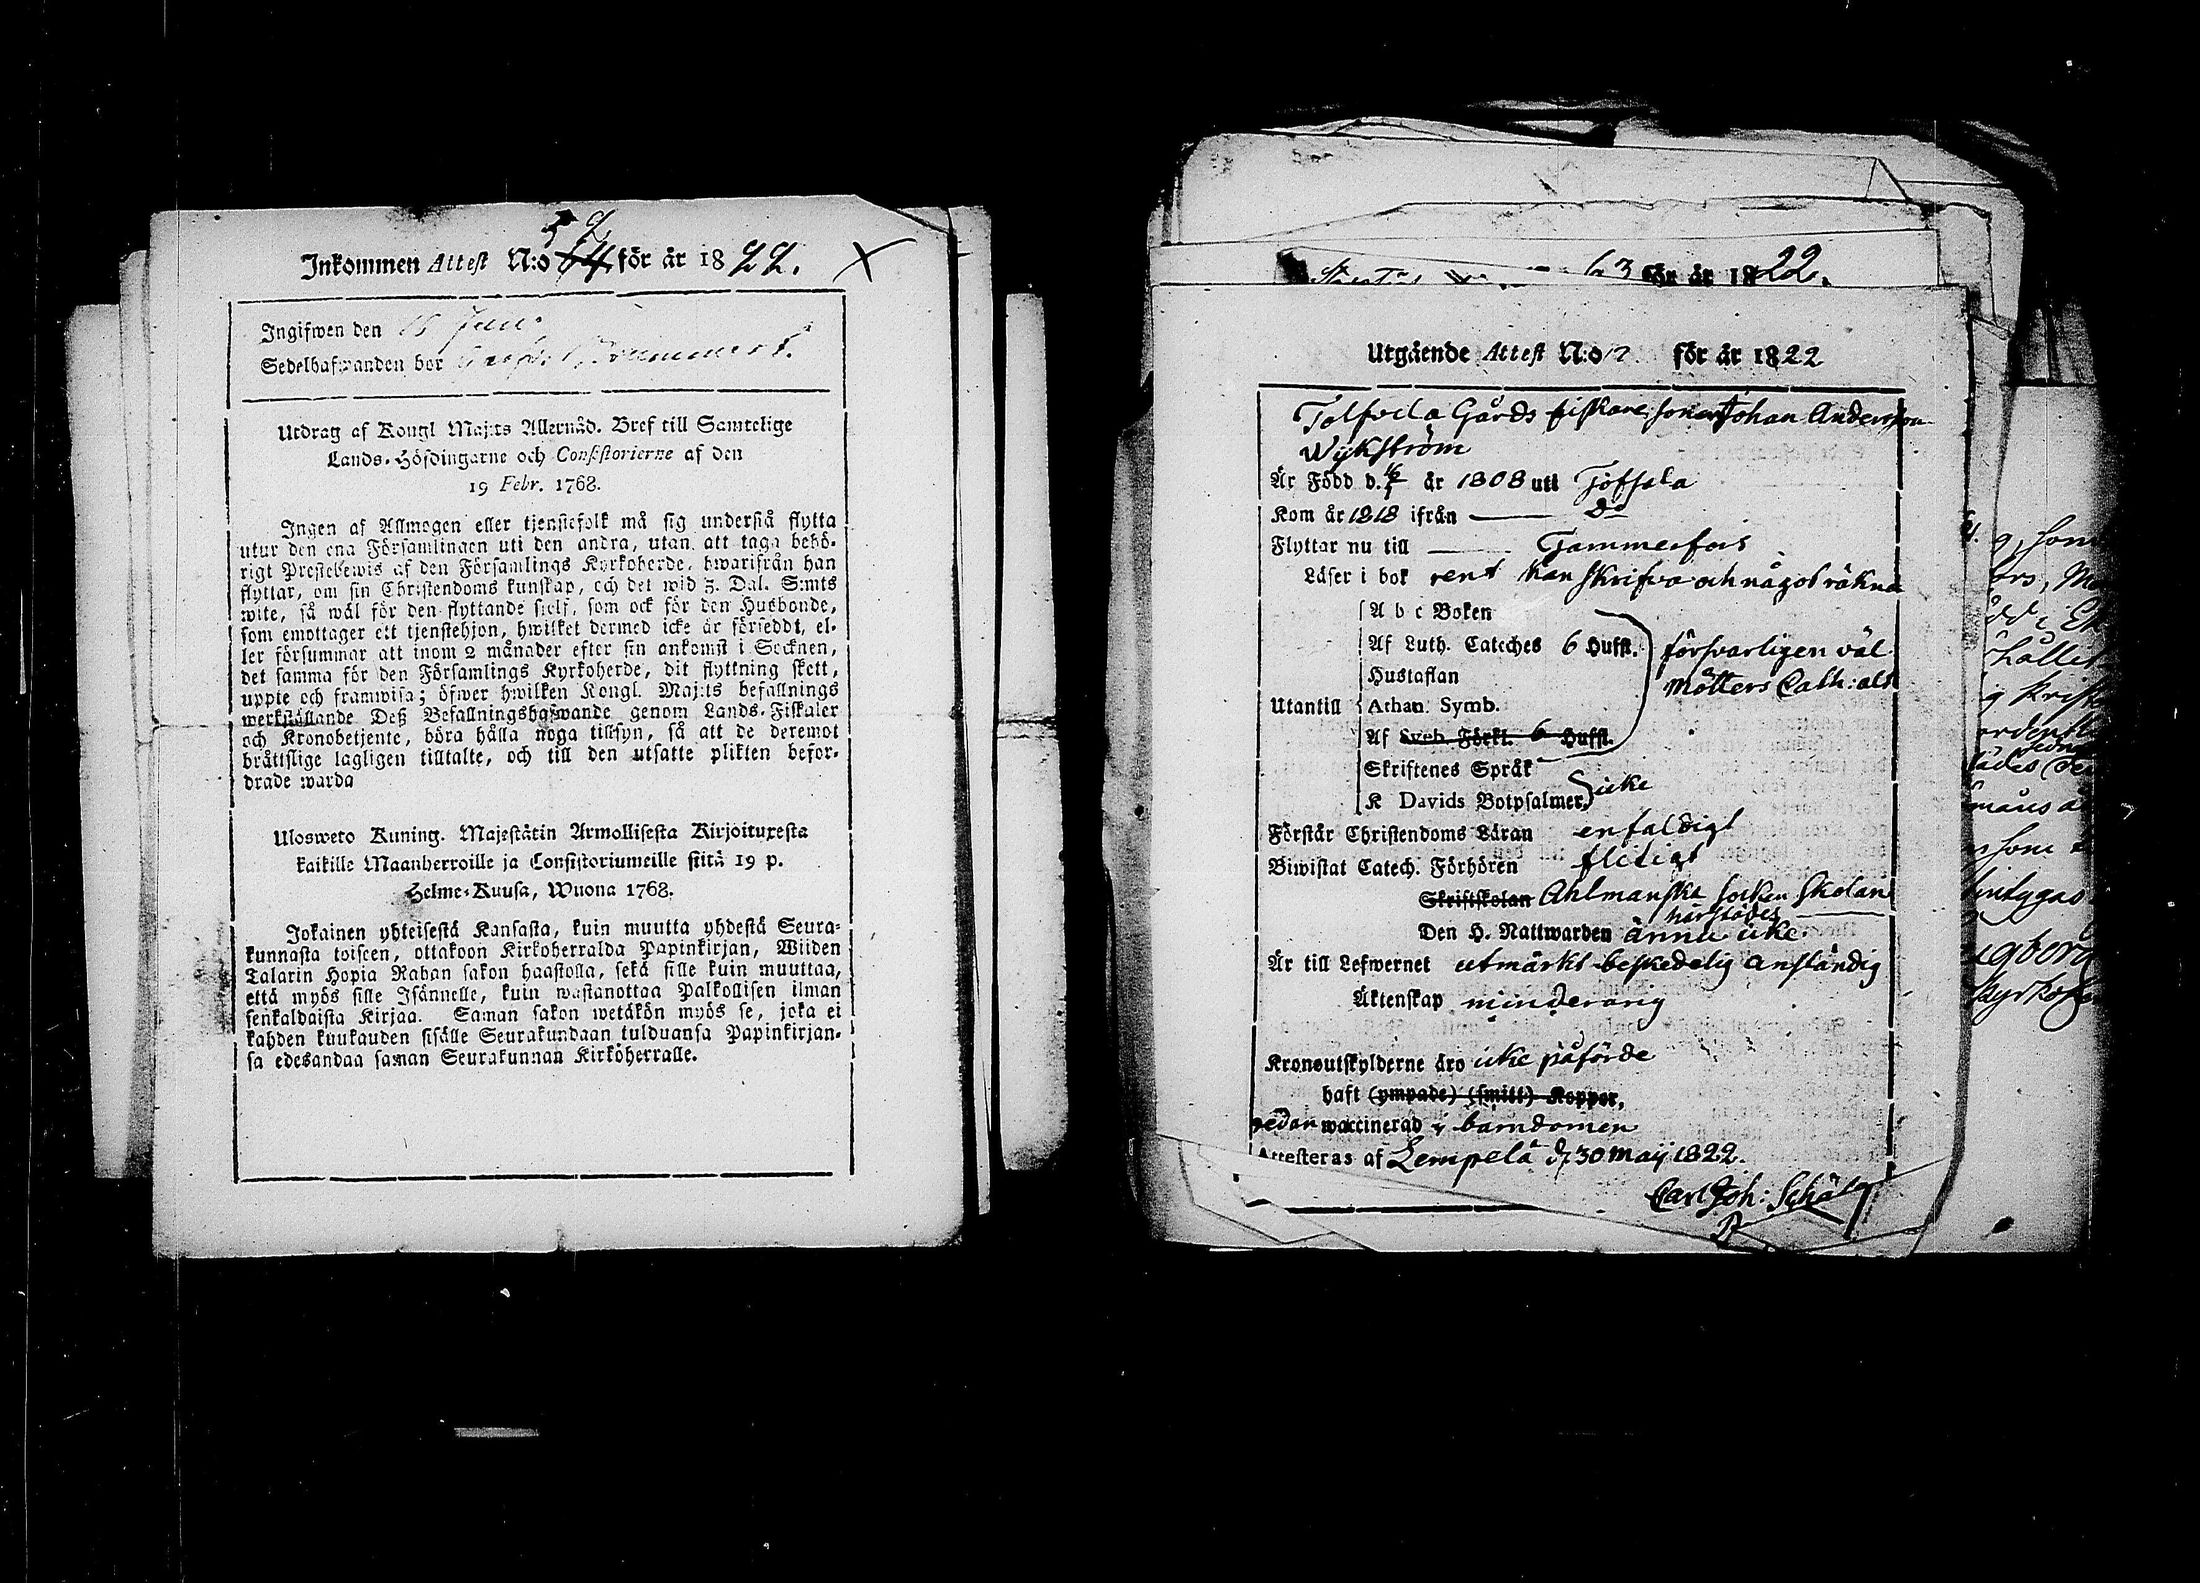 52
Inkommen Attest N:o 64. för år 1822. X
Ingifwen den 15 Juni
Sedelhafwanden bor
Utdrag af Kongl Maj:ts Allernåd. Bref till Samtelige
Lands-Höfdingarne och Consistorierne af den
19 Febr. 1768.
Ingen af Allmogen eller tjenstefolk må sig understå flytta
utur den ena Församlingen uti den andra, utan att taga behö-
rigt Prestebewis af den Församlings Kyrkoherde, hwarifrån han
flyttar, om sin Christendoms kunskap, och det wid 3. Dal. S:mts
wite, så wäl för den flyttande sielf, som ock för den Husbonde,
som emottager ett tjenstehjon, hwilket dermed icke är försedt, el-
ler försummar att inom 2 månader efter sin ankomst i Socknen,
det samma för den Församlings Kyrkoherde, dit flyttning skett,
uppte och framwisa; öfwer hwilken Kongl. Maj:ts befallnings
werkställande Deß Befallningshafwande genom Lands-Fiskaler
och Kronobetjente, böra hålla noga tillsyn, så att de deremot
bråttslige lagligen tilltalte, och till den utsatte plikten befor-
drade warda
Ulosweto Kuning. Majestätin Armollisesta Kirjoituxesta
kaikille Maanherroille ja Consistoriumeille siitä 19 p.
Helme-Kuusa, Wuona 1768.
Jokainen yhteisestä Kansasta, kuin muutta yhdestä Seura-
kunnasta toiseen, ottakoon Kirkoherralda Papinkirjan, Wiiden
Talarin Hopia Rahan sakon haastolla, sekä sille kuin muuttaa,
että myös sille Isännelle, kuin wastanottaa Palkollisen ilman
senkaldaista Kirjaa. Saman sakon wetäkön myös se, joka ei
kahden kuukauden sisälle Seurakundaan tulduansa Papinkirjan-
sa edesandaa saman Seurakunnan Kirköherralle.
63 för år 1822.
Utgående Attest N:o 12 för år 1822
Tolfvela Gårds fiskare sonen Johan Andersson
Wykström
Är Född d. år 1808 uti Töffsala
Kom år 1818 ifrån do
Flyttar nu till Tammerfors
Läser i bok rent kan skrifva och något räkna
A b c Boken
Af Luth. Cateches 6 Hufst. försvarligen väl
Hustaflan Möllers Cath: alt
Utantill Athan. Symb.
Af Sveb. Förkl. 6 Hufst.
Skriftenes Språk
K Davids Botpsalmer, icke
Förstår Christendoms Läran enfaldigt
Biwistat Catech. Förhören flitigt
Skriftskolan Ahlmanska socken skolan
härstädes
Den H. Nattwarden ännu icke
Är till Lefwernet utmärkt beskedelig anständig
Äktenskap minderårig
Kronoutskylderne äro icke påförde
haft (ympade) (smitt) Koppor,
sedan waccinerad i barndomen
Attesteras af Lempela d. 30 Maij 1822.
Carl Joh: